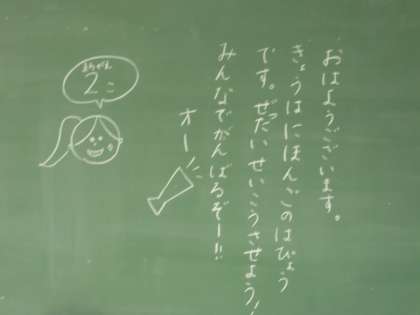 おはようございます。
きょうはにほんごのはぴょう
です。ぜったいせいこうさせよう！
みんなでがんばるぞー!!
オー
まちがえ
2こ